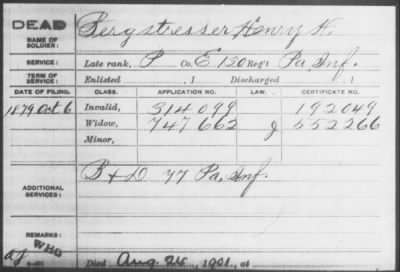 DEAD
NAME OF SOLDIER: Bergstresser Henry H.
SERVICE: Late rank, P Co. E 150 Reg't Pa. Inf.
TERM OF SERVICE: Enlisted , 1 Discharged , 1
DATE OF FILING. CLASS. APPLICATION NO. LAW. CERTIFICATE NO.
1879 Oct 6 Invalid, 314 099 192049
Widow, 747 662 552266
Minor,
ADDITIONAL SERVICES: B & D 77 Pa. Inf.
REMARKS:
WHO
Died Aug. 26, 1901, at